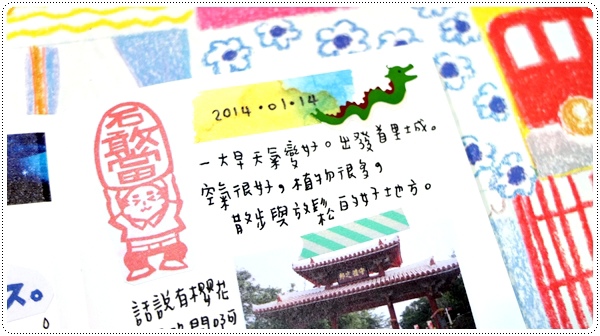 2014・01・14
石敢當
一大早天氣變好。出發首里城。
空氣很好，植物很多，
散步與放鬆的好地方。
ス。
話說有櫻花
門啊